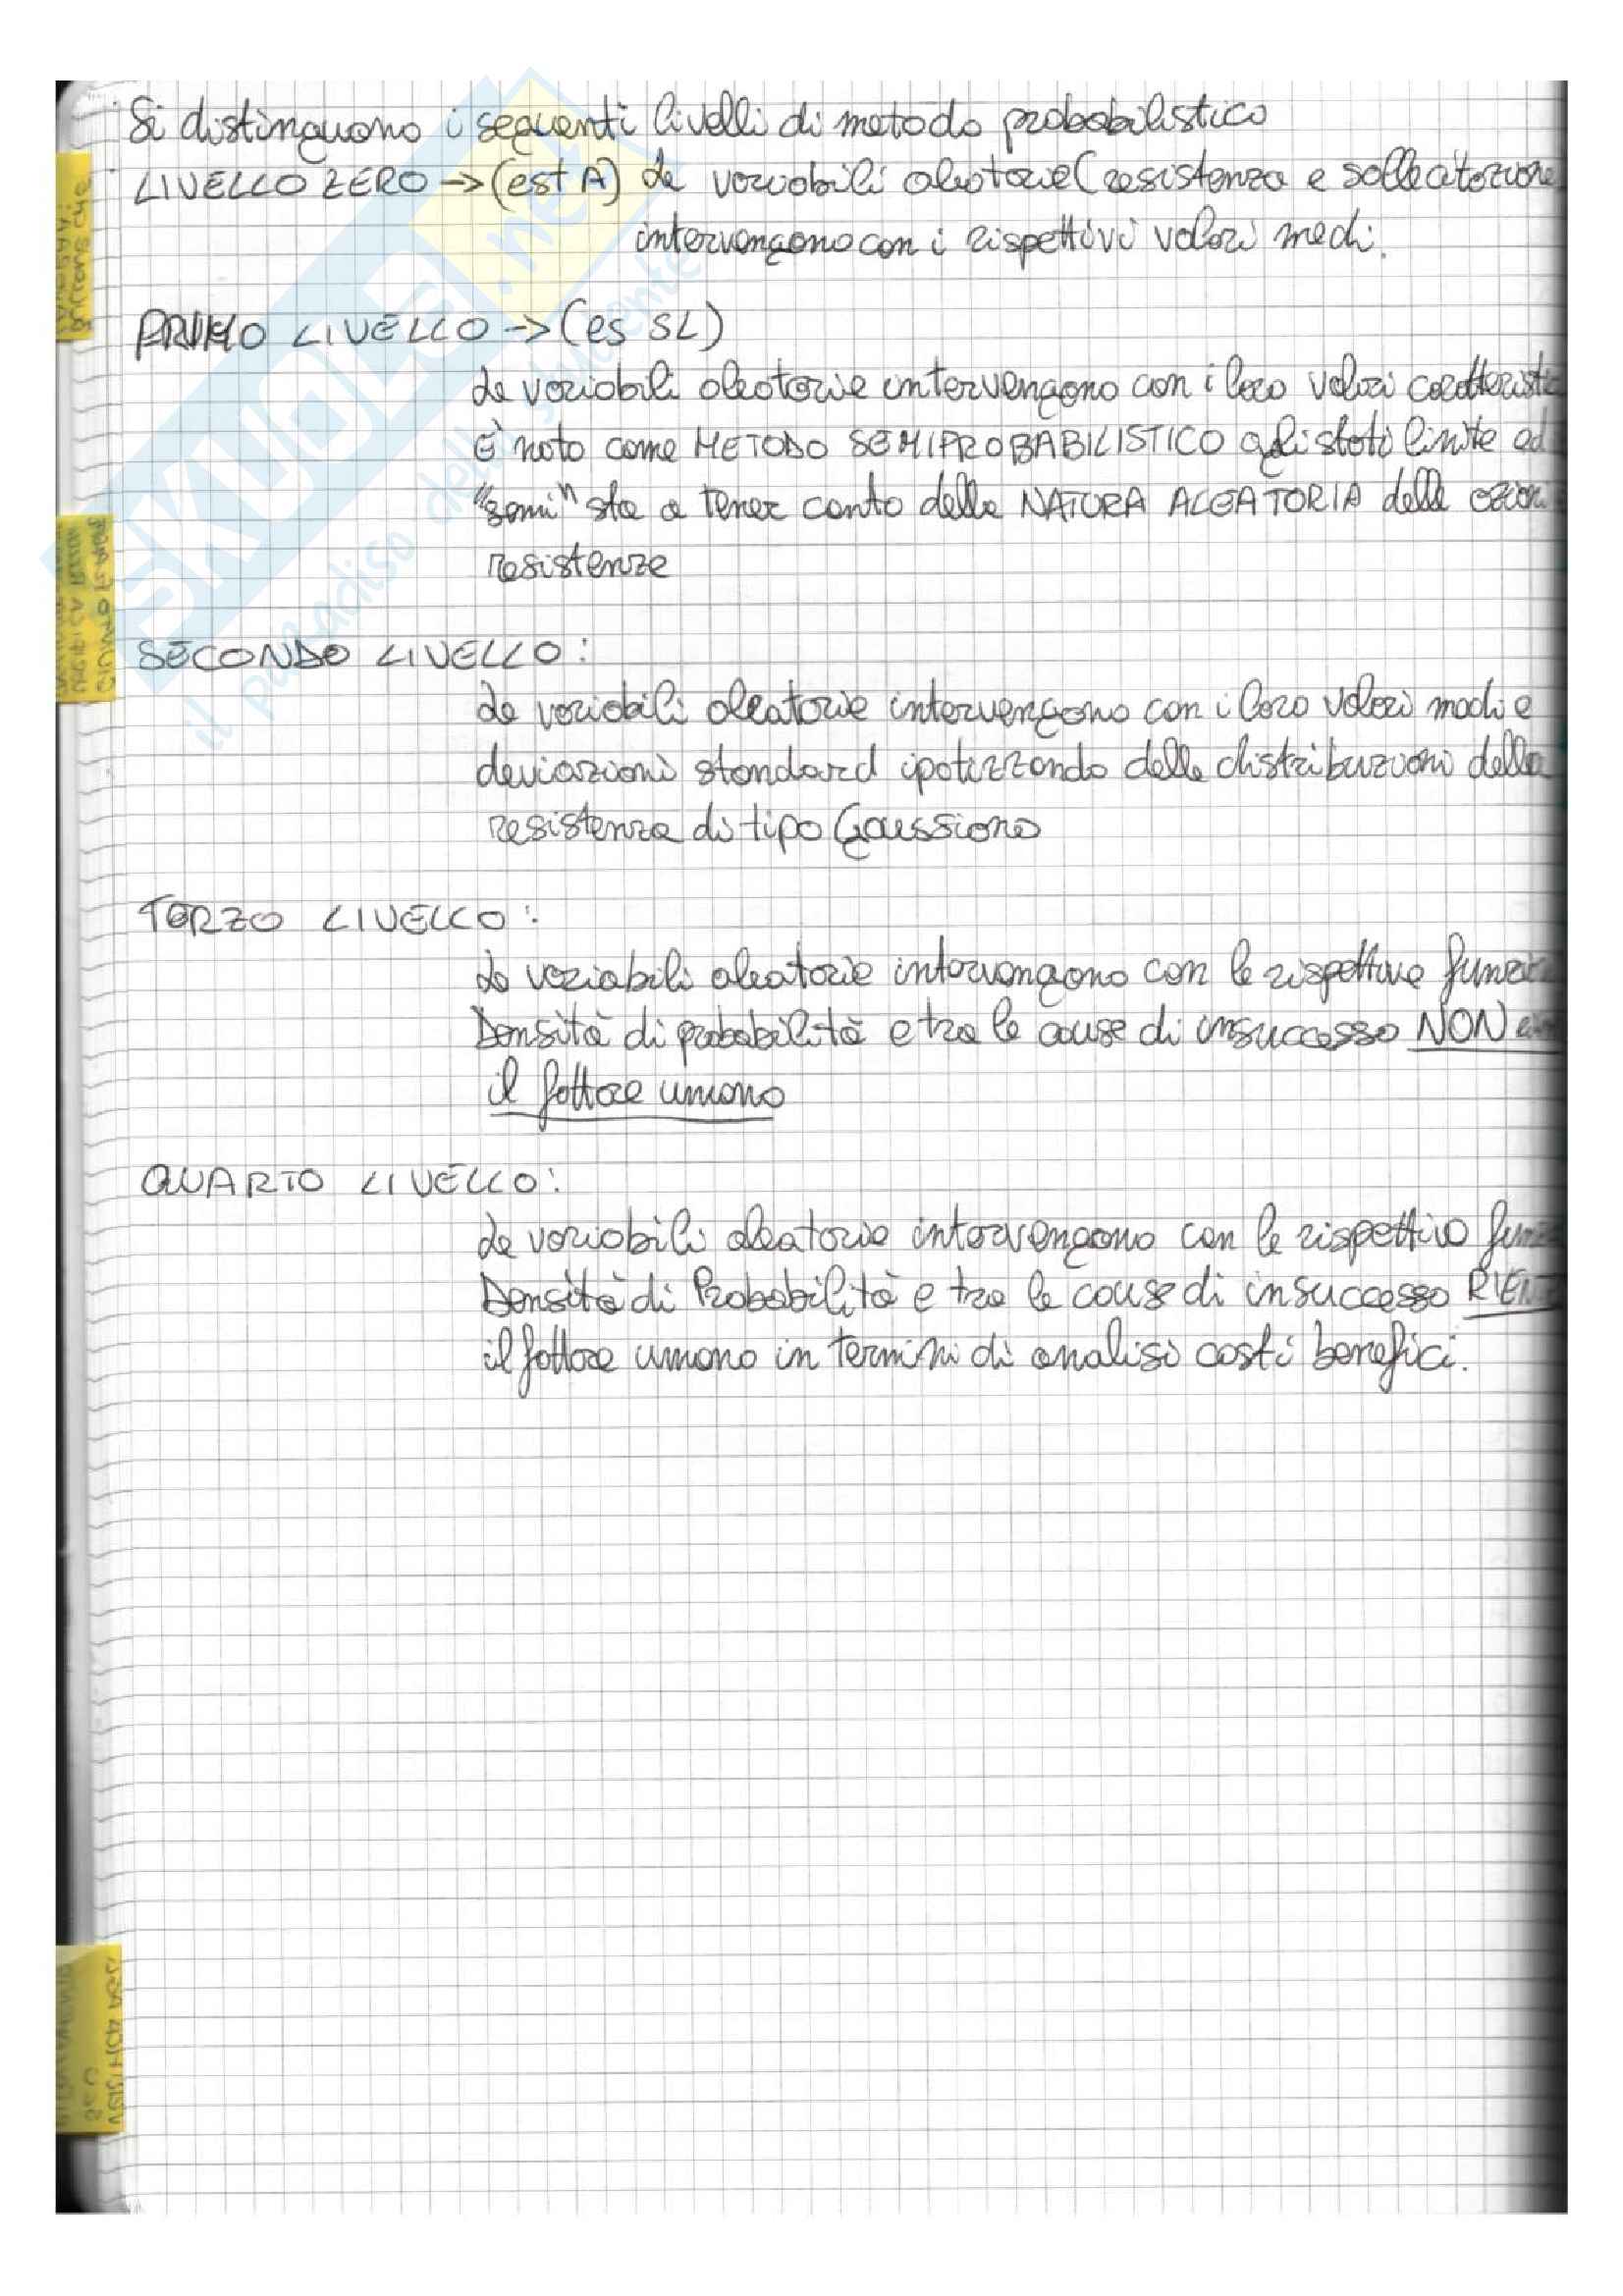 Si distinguono i seguenti livelli di metodo probabilistico
LIVELLO ZERO -> (es t A) Le variabili aleatorie (resistenza e sollecitazione
intervengono con i rispettivi valori medi.
PRIMO LIVELLO -> (es SL)
Le variabili aleatorie intervengono con i loro valori caratteristic
È noto come METODO SEMIPROBABILISTICO agli stati limite ed
"semi" sta a tener conto della NATURA ALEATORIA delle azioni
resistenze
SECONDO LIVELLO:
Le variabili aleatorie intervengono con i loro valori medi e
deviazioni standard ipotizzando delle distribuzioni della
resistenza di tipo Gaussiano
TERZO LIVELLO:
Le variabili aleatorie intervengono con le rispettive funzi
Densità di probabilità e tra le cause di insuccesso NON
il fattore umano
QUARTO LIVELLO:
Le variabili aleatorie intervengono con le rispettive funz
Densità di Probabilità e tra le cause di insuccesso RIENT
il fattore umano in termini di analisi costi benefici.
SKUOLA.net
il paradiso dello studente